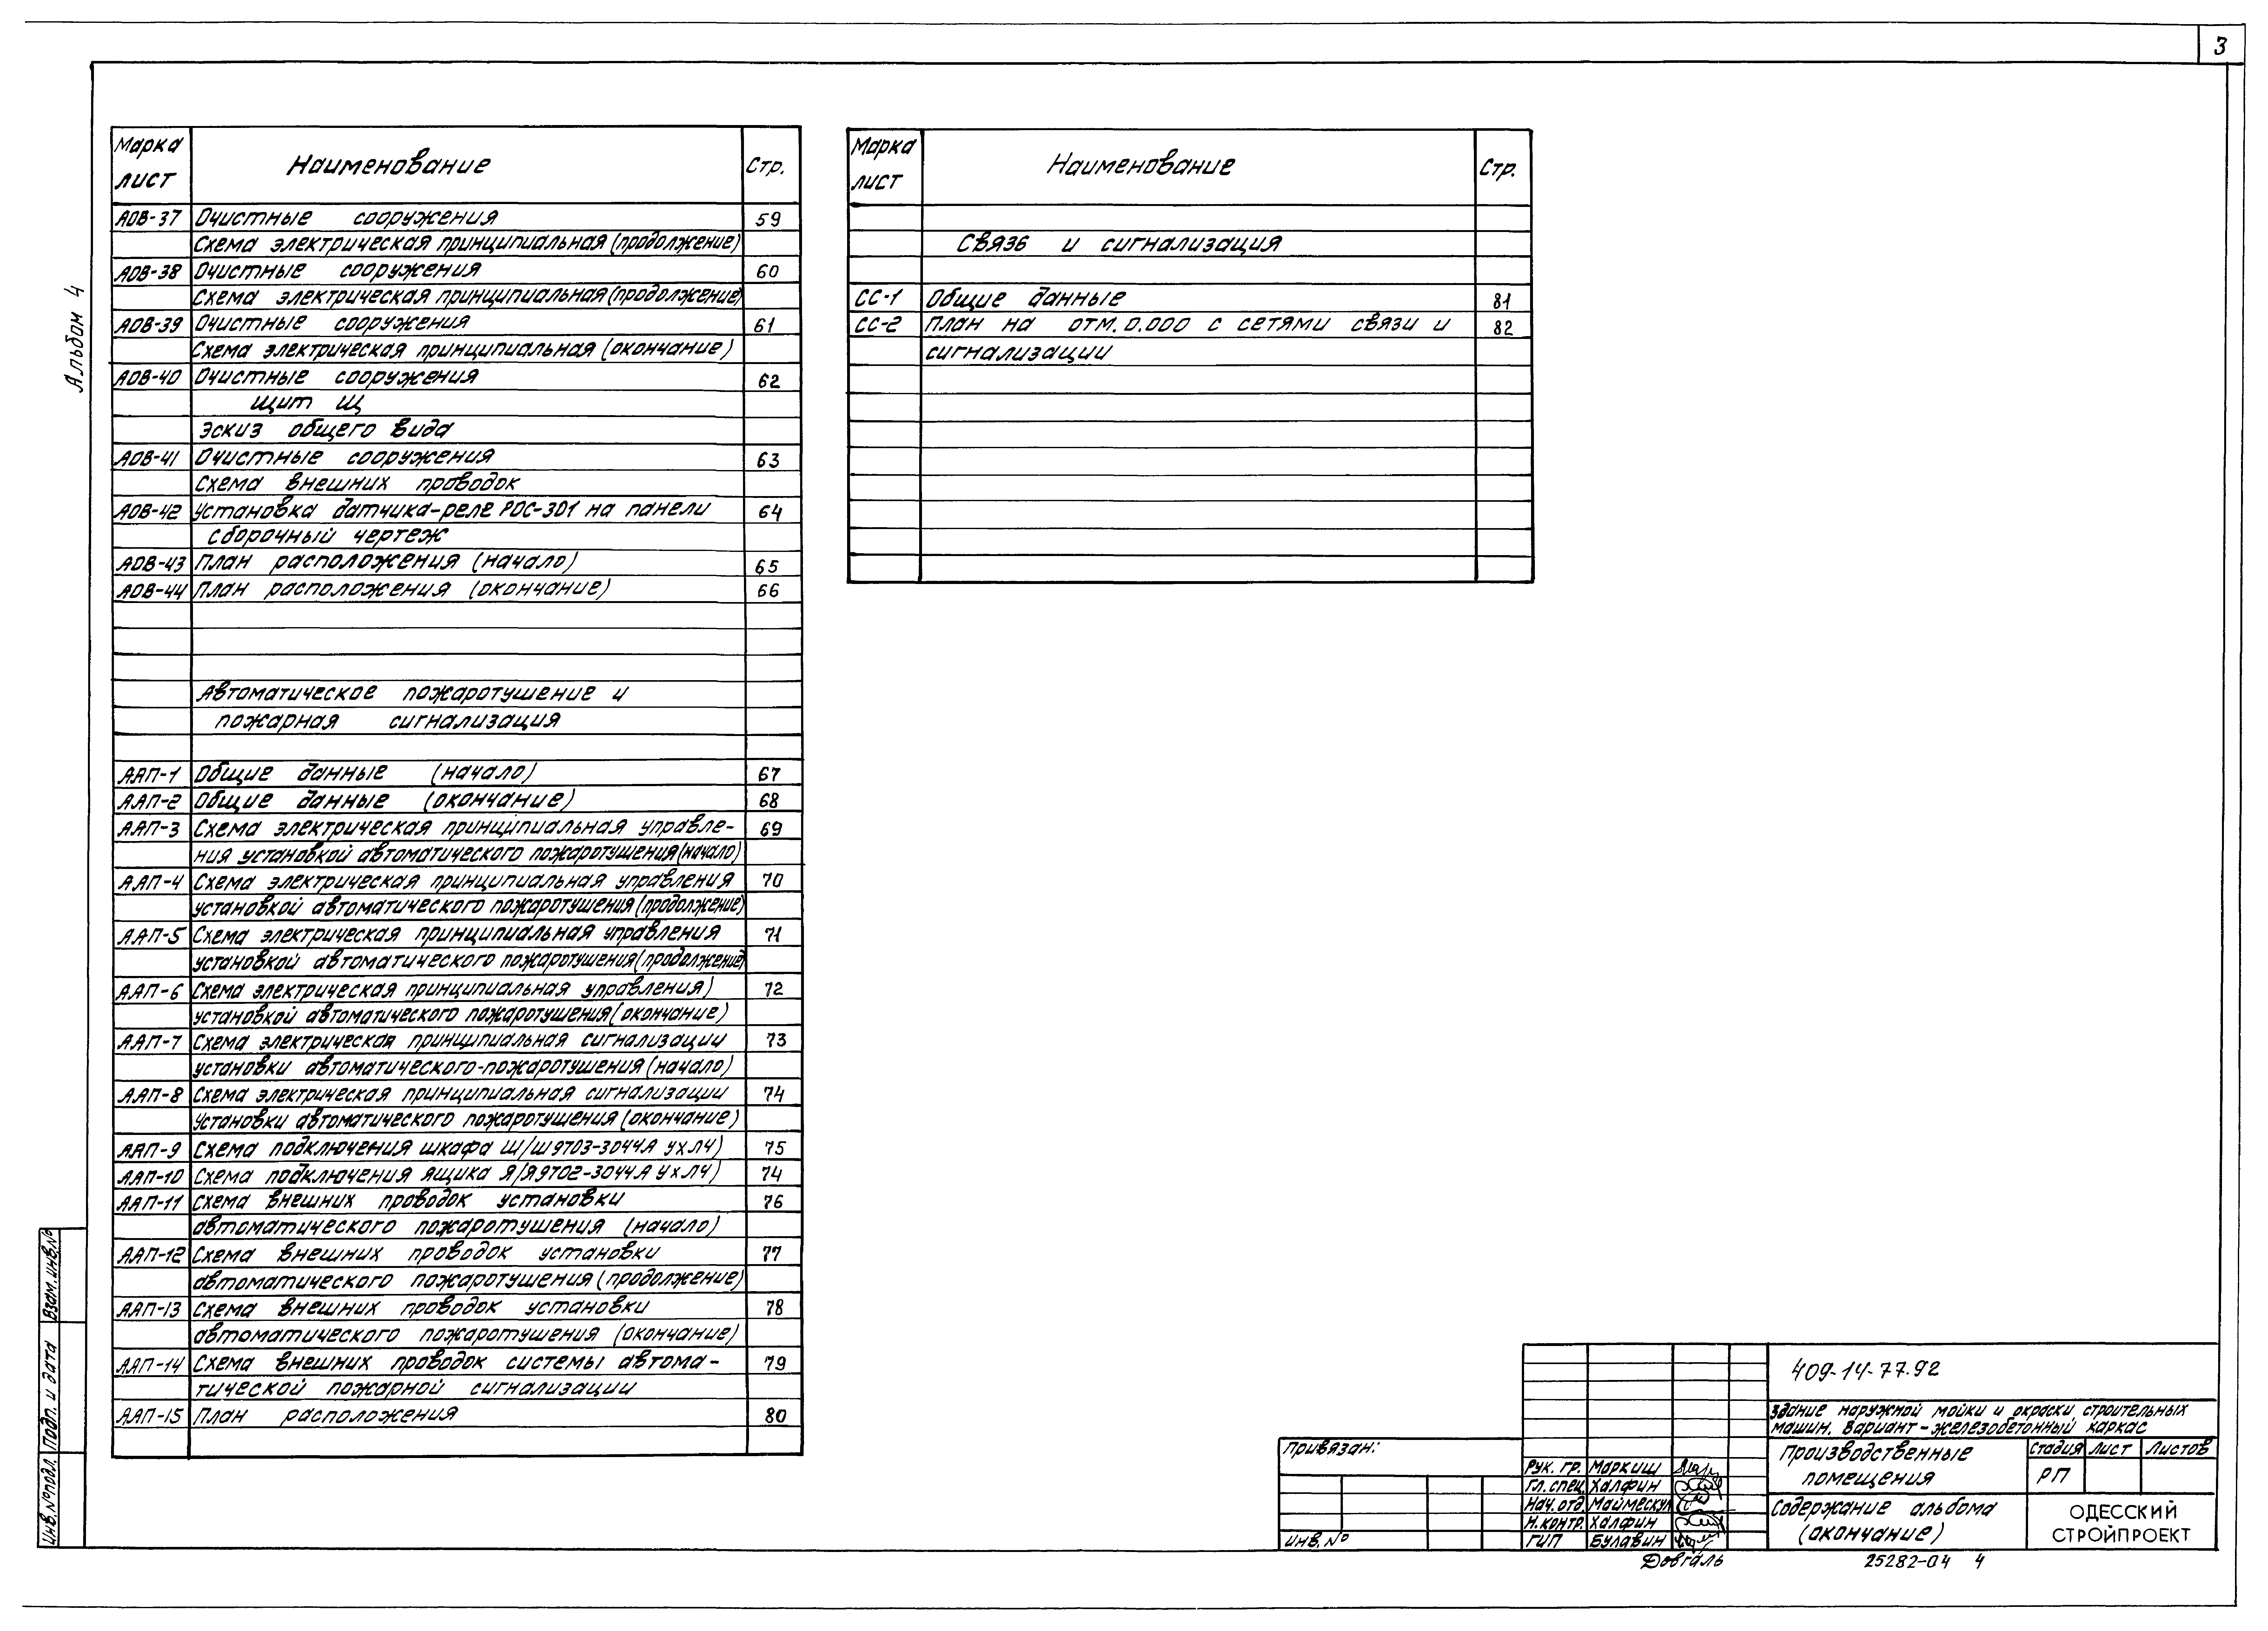 3
Альбом 4
Марка лист Наименование Стр.
АОВ-37 Очистные сооружения 59
Схема электрическая принципиальная (продолжение)
АОВ-38 Очистные сооружения 60
Схема электрическая принципиальная (продолжение)
АОВ-39 Очистные сооружения 61
Схема электрическая принципиальная (окончание)
АОВ-40 Очистные сооружения 62
Щит Щ
Эскиз общего вида
АОВ-41 Очистные сооружения 63
Схема внешних проводок
АОВ-42 Установка датчика-реле РОС-301 на панели 64
Сборочный чертеж
АОВ-43 План расположения (начало) 65
АОВ-44 План расположения (окончание) 66
Автоматическое пожаротушение и
пожарная сигнализация
ААП-1 Общие данные (начало) 67
ААП-2 Общие данные (окончание) 68
ААП-3 Схема электрическая принципиальная управле- 69
ния установкой автоматического пожаротушения (начало)
ААП-4 Схема электрическая принципиальная управления 70
установкой автоматического пожаротушения (продолжение)
ААП-5 Схема электрическая принципиальная управления 71
установкой автоматического пожаротушения (продолжение)
ААП-6 Схема электрическая принципиальная управления) 72
установкой автоматического пожаротушения (окончание)
ААП-7 Схема электрическая принципиальная сигнализации 73
установки автоматического-пожаротушения (начало)
ААП-8 Схема электрическая принципиальная сигнализации 74
Установки автоматического пожаротушения (окончание)
ААП-9 Схема подключения шкафа Ш/Ш9703-3044А УХЛ4) 75
ААП-10 Схема подключения ящика Я/Я9702-3044А УХЛ4) 74
ААП-11 Схема внешних проводок установки 76
автоматического пожаротушения (начало)
ААП-12 Схема внешних проводок установки 77
автоматического пожаротушения (продолжение)
ААП-13 Схема внешних проводок установки 78
автоматического пожаротушения (окончание)
ААП-14 Схема внешних проводок системы автома- 79
тической пожарной сигнализации
ААП-15 План расположения 80
Марка лист Наименование Стр.
Связь и сигнализация
СС-1 Общие данные 81
СС-2 План на отм. 0.000 с сетями связи и 82
сигнализации
Взам. инв.№
Подп. и дата
Инв.№подл.
Привязан:
Инв.№
Рук. гр. Маркиш
Гл. спец. Халфин
Нач. отд Маймескул
Н. контр. Халфин
ГИП Булавин
409-14-77.92
Здание наружной мойки и окраски строительных
машин. Вариант - железобетонный каркас
Производственные
помещения
Стадия Лист Листов
РП
Содержание альбома
(окончание)
ОДЕССКИЙ
СТРОЙПРОЕКТ
Довгаль 25282-04 4